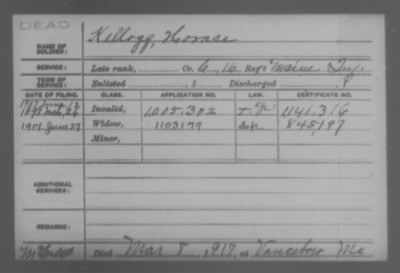 DEAD
Kellogg, Horace
NAME OF SOLDIER:
SERVICE: Late rank, Co. G, 16 Reg't Maine Inf.
TERM OF SERVICE: Enlisted , 1 Discharged , 1
DATE OF FILING. CLASS. APPLICATION NO. LAW. CERTIFICATE NO.
Invalid, 1,005,302 1,141,316
1917 June 27 Widow, 1103179 845,197
Minor,
ADDITIONAL SERVICES:
REMARKS:
Died Mar 8, 1917, at Vanceboro Me